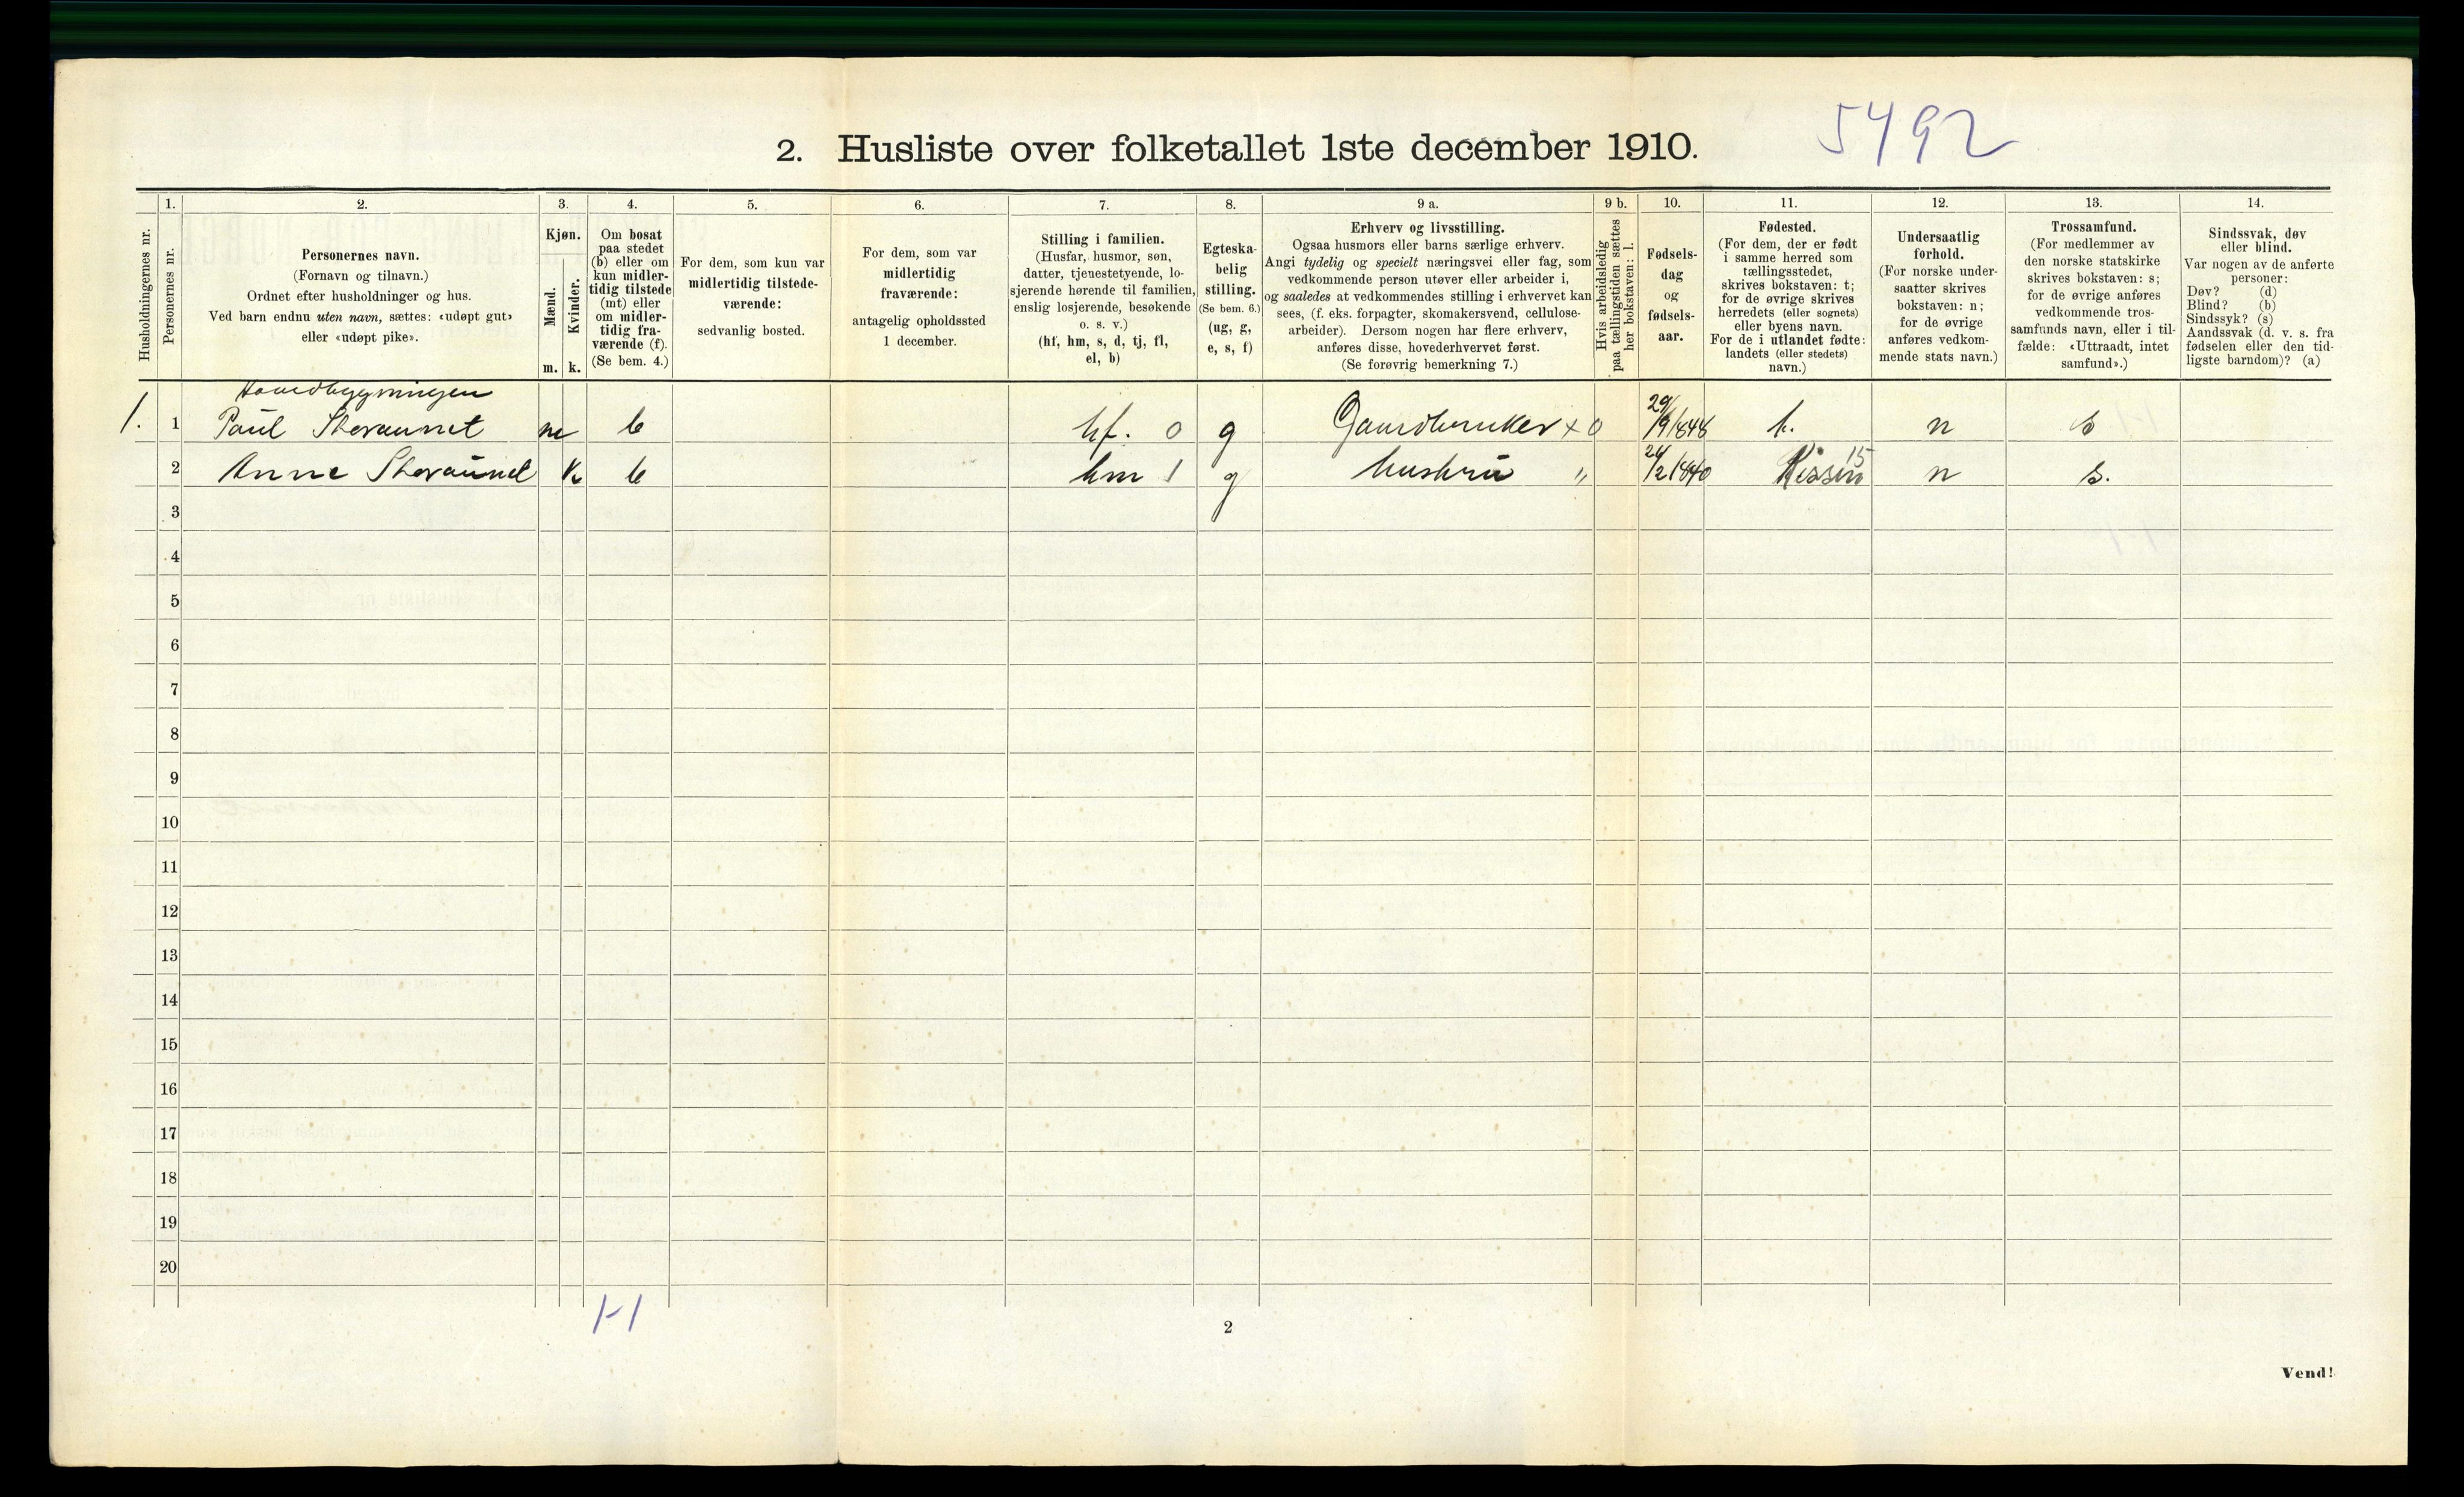 5492
2. Husliste over folketallet 1ste december 1910.
Husholdningernes nr.
1.
Personernes nr.
2.
Personernes navn.
(Fornavn og tilnavn.)
Ordnet efter husholdninger og hus.
Ved barn endnu uten navn, sættes: «udøpt gut»
eller «udøpt pike».
3.
Kjøn.
Mænd.
Kvinder.
m. k.
4.
Om bosat
paa stedet
(b) eller om
kun midler-
tidig tilstede
(mt) eller
om midler-
tidig fra-
værende (f).
(Se bem. 4.)
5.
For dem, som kun var
midlertidig tilstede-
værende:
sedvanlig bosted.
6.
For dem, som var
midlertidig
fraværende:
antagelig opholdssted
1 december.
7.
Stilling i familien.
(Husfar, husmor, søn,
datter, tjenestetyende, lo-
sjerende hørende til familien,
enslig losjerende, besøkende
o. s. v.)
(hf, hm, s, d, tj, fl,
el, b)
8.
Egteska-
belig
stilling.
(Se bem. 6.)
(ug, g,
e, s, f)
9 a.
Erhverv og livsstilling.
Ogsaa husmors eller barns særlige erhverv.
Angi tydelig og specielt næringsvei eller fag, som
vedkommende person utøver eller arbeider i,
og saaledes at vedkommendes stilling i erhvervet kan
sees, (f. eks. forpagter, skomakersvend, cellulose-
arbeider). Dersom nogen har flere erhverv,
anføres disse, hovederhvervet først.
(Se forøvrig bemerkning 7.)
9 b.
Hvis arbeidsledig
paa tællingstiden sættes
her bokstaven: l.
10.
Fødsels-
dag
og
fødsels-
aar.
11.
Fødested.
(For dem, der er født
i samme herred som
tællingsstedet,
skrives bokstaven: t;
for de øvrige skrives
herredets (eller sognets)
eller byens navn.
For de i utlandet fødte:
landets (eller stedets)
navn.)
12.
Undersaatlig
forhold.
(For norske under-
saatter skrives
bokstaven: n;
for de øvrige
anføres vedkom-
mende stats navn.)
13.
Trossamfund.
(For medlemmer av
den norske statskirke
skrives bokstaven: s;
for de øvrige anføres
vedkommende tros-
samfunds navn, eller i til-
fælde: «Uttraadt, intet
samfund».)
14.
Sindssvak, døv
eller blind.
Var nogen av de anførte
personer:
Døv? (d)
Blind? (b)
Sindssyk? (s)
Aandssvak (d. v. s. fra
fødselen eller den tid-
ligste barndom)? (a)
Hovedbygningen
1. 1 Paul m b hf. 0 g Gaardbruker x 0 29/9 1848 t. n s
2 Anne k b hm 1 g hustru " 24/2 1840 Rissen 15 n s.
3
4
5
6
7
8
9
10
11
12
13
14
15
16
17
18
19
20
1-1
2
Vend!